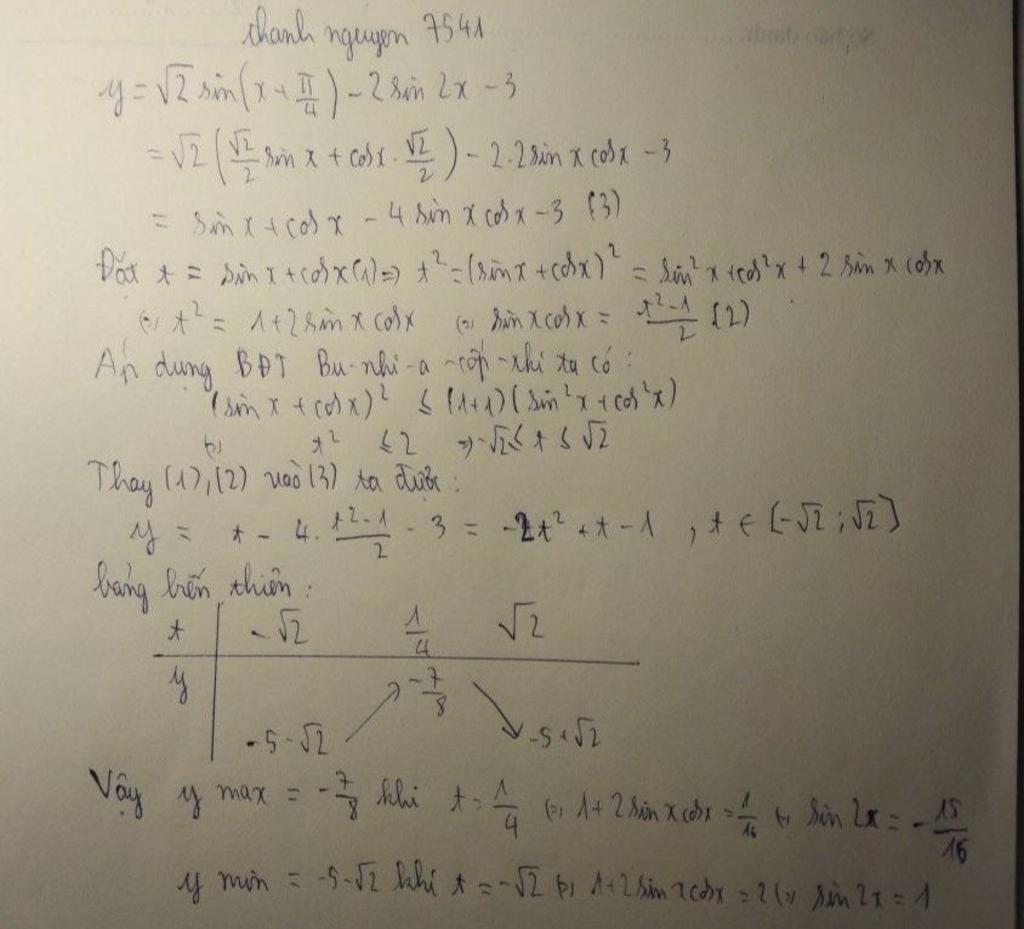 thanh nguyen 7541
y = √2 sin(x + π/4) - 2 sin 2x - 3
= √2 (√2/2 sin x + cos x . √2/2) - 2.2 sin x cos x - 3
= sin x + cos x - 4 sin x cos x - 3 (3)
Đặt t = sin x + cos x (1) => t² = (sin x + cos x)² = sin² x + cos² x + 2 sin x cos x
(=) t² = 1 + 2 sin x cos x (=) sin x cos x = t²-1/2 (2)
Áp dụng BĐT Bu-nhi-a-cốp-xki ta có :
(sin x + cos x)² ≤ (1+1)(sin² x + cos² x)
(=) t² ≤ 2 => -√2 ≤ t ≤ √2
Thay (1), (2) vào (3) ta được :
y = t - 4. t²-1/2 - 3 = -2t² + t - 1 , t ∈ [-√2 ; √2]
bảng biến thiên :
t -√2 1/4 √2
y -7/8
-5-√2 -5+√2
Vậy y max = -7/8 khi t = 1/4 (=) 1 + 2 sin x cos x = 1/16 (=) sin 2x = -15/16
y min = -5-√2 khi t = -√2 (=) 1 + 2 sin x cos x = 2 (=) sin 2x = 1